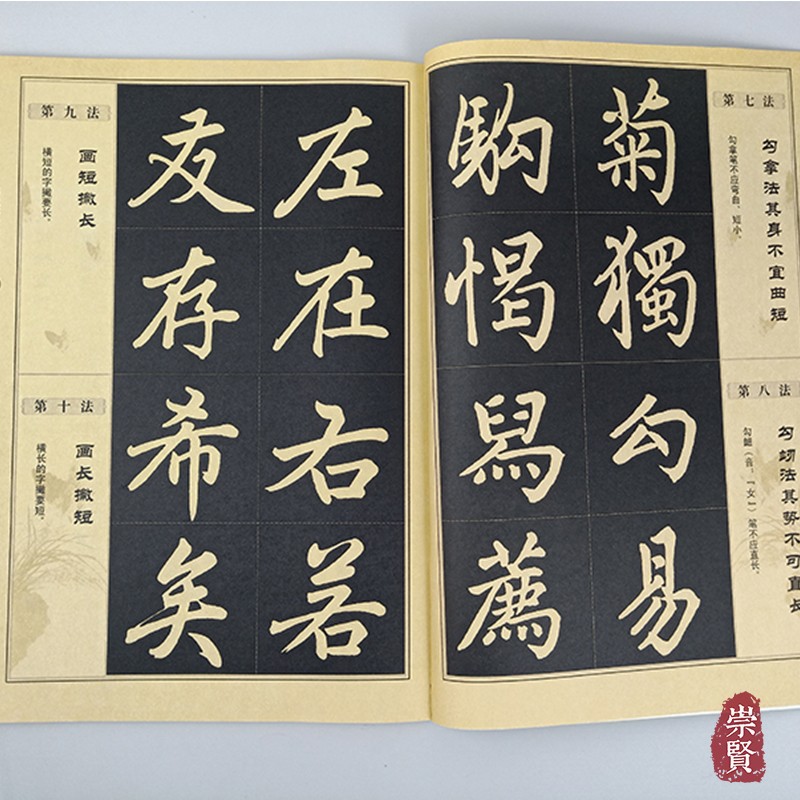 第七法
勾拿法其身不宜曲短
勾拿笔不应弯曲、短小。
第八法
勾衂法其势不可直长
勾衄（音：“女”）笔不应直长。
菊獨勾易
駒愒舄薦
左在右若
友存希矣
第九法
画短撇长
横短的字撇要长。
第十法
画长撇短
横长的字撇要短。
崇賢